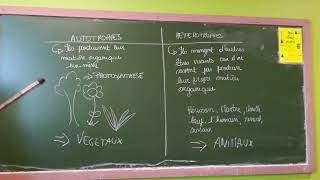 AUTOTROPHES
Ils produisent leur
matière organique
eux-même
PHOTOSYNTHESE
=> VEGETAUX
HETEROTROPHES
Ils mangent d'autres
êtres vivants car ils ne
savent pas produire
leur propre matière
organique
Hérisson, Martre, chouette
l'humain, renard,
=> ANIMAUX